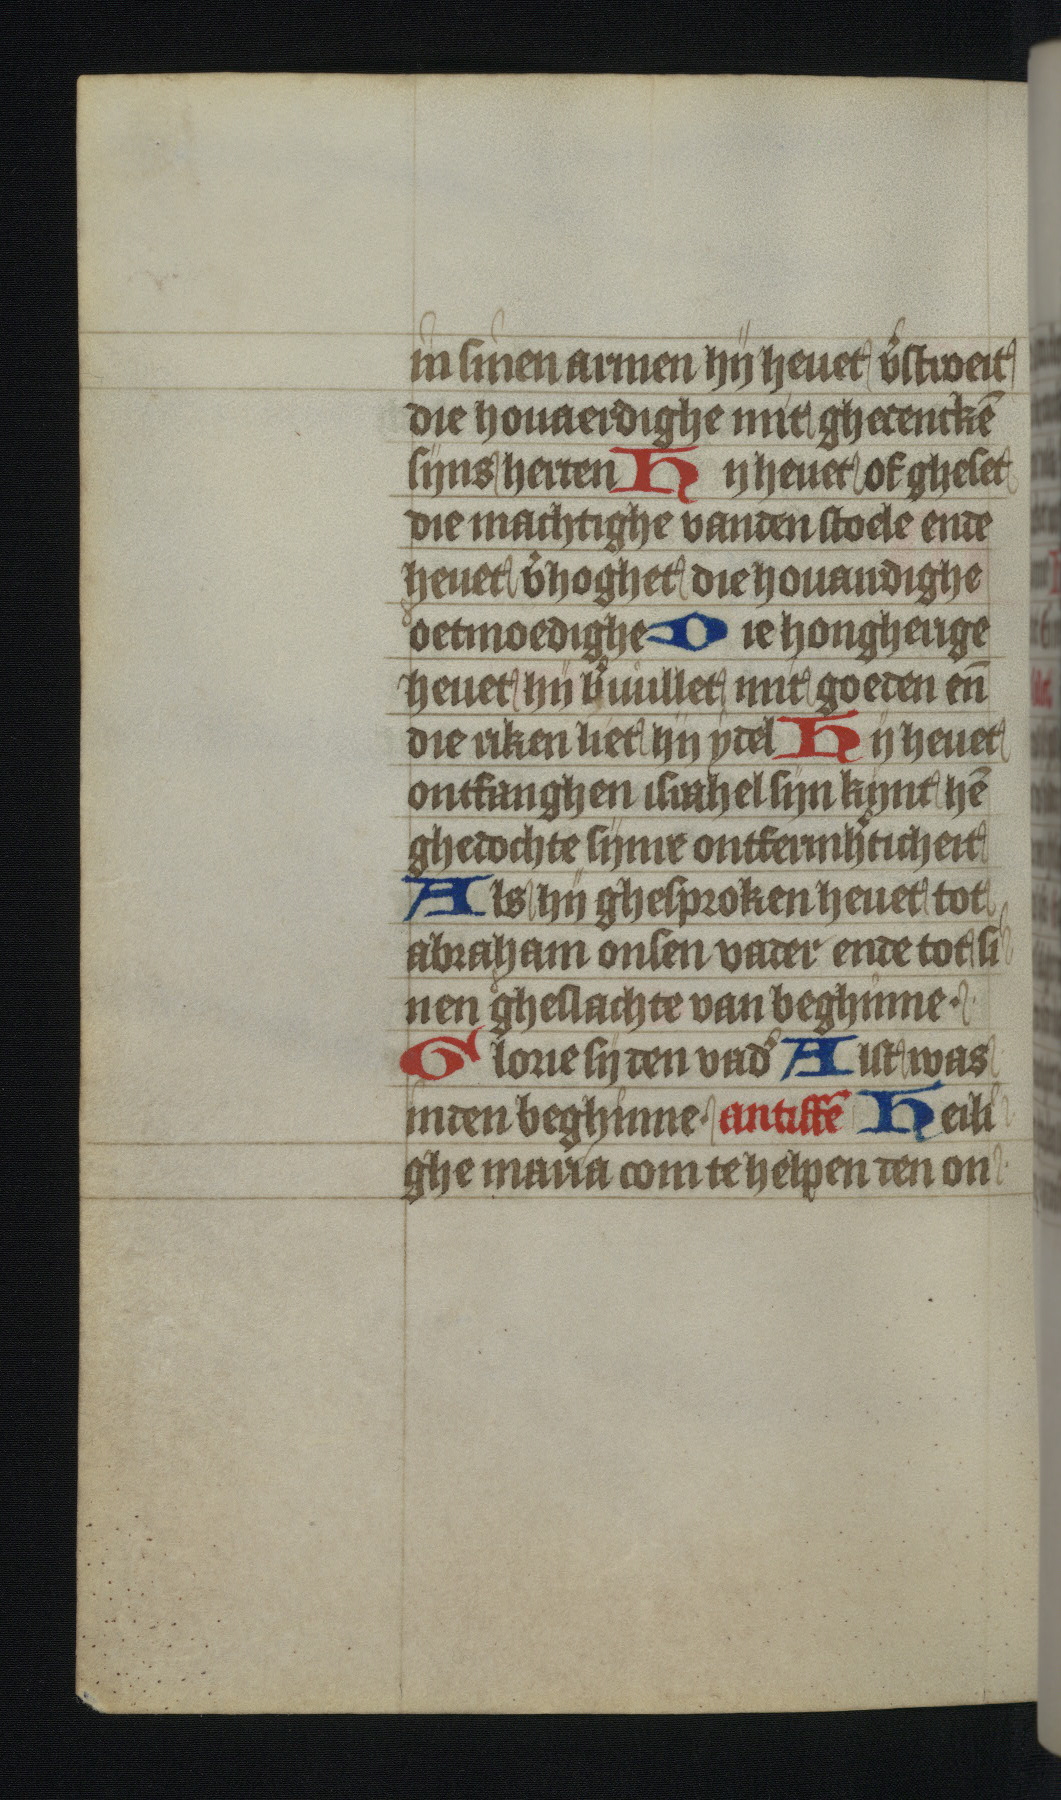 in sinen armen hij heuet v̉stroeit
die houaerdighe mit ghedenckē
sijns herten Hij heuet of gheset
die machtighe vanden stoele ende
heuet v̉hoghet die houaudighe
oetmoedighe Die hongherige
heuet hij v̉uullet mit goeden en̄
die riken liet hij ydel Hij heuet
ontfanghen israhel sijn kijnt hē
ghedochte sijnre ontfermh̉ticheit
Als hij ghesproken heuet tot
abraham onsen vader ende tot si
nen gheslachte van beghinne·
Glorie sij den vad̉ Alst was
inden beghinne· antiffē Heili
ghe maria com te helpen den on